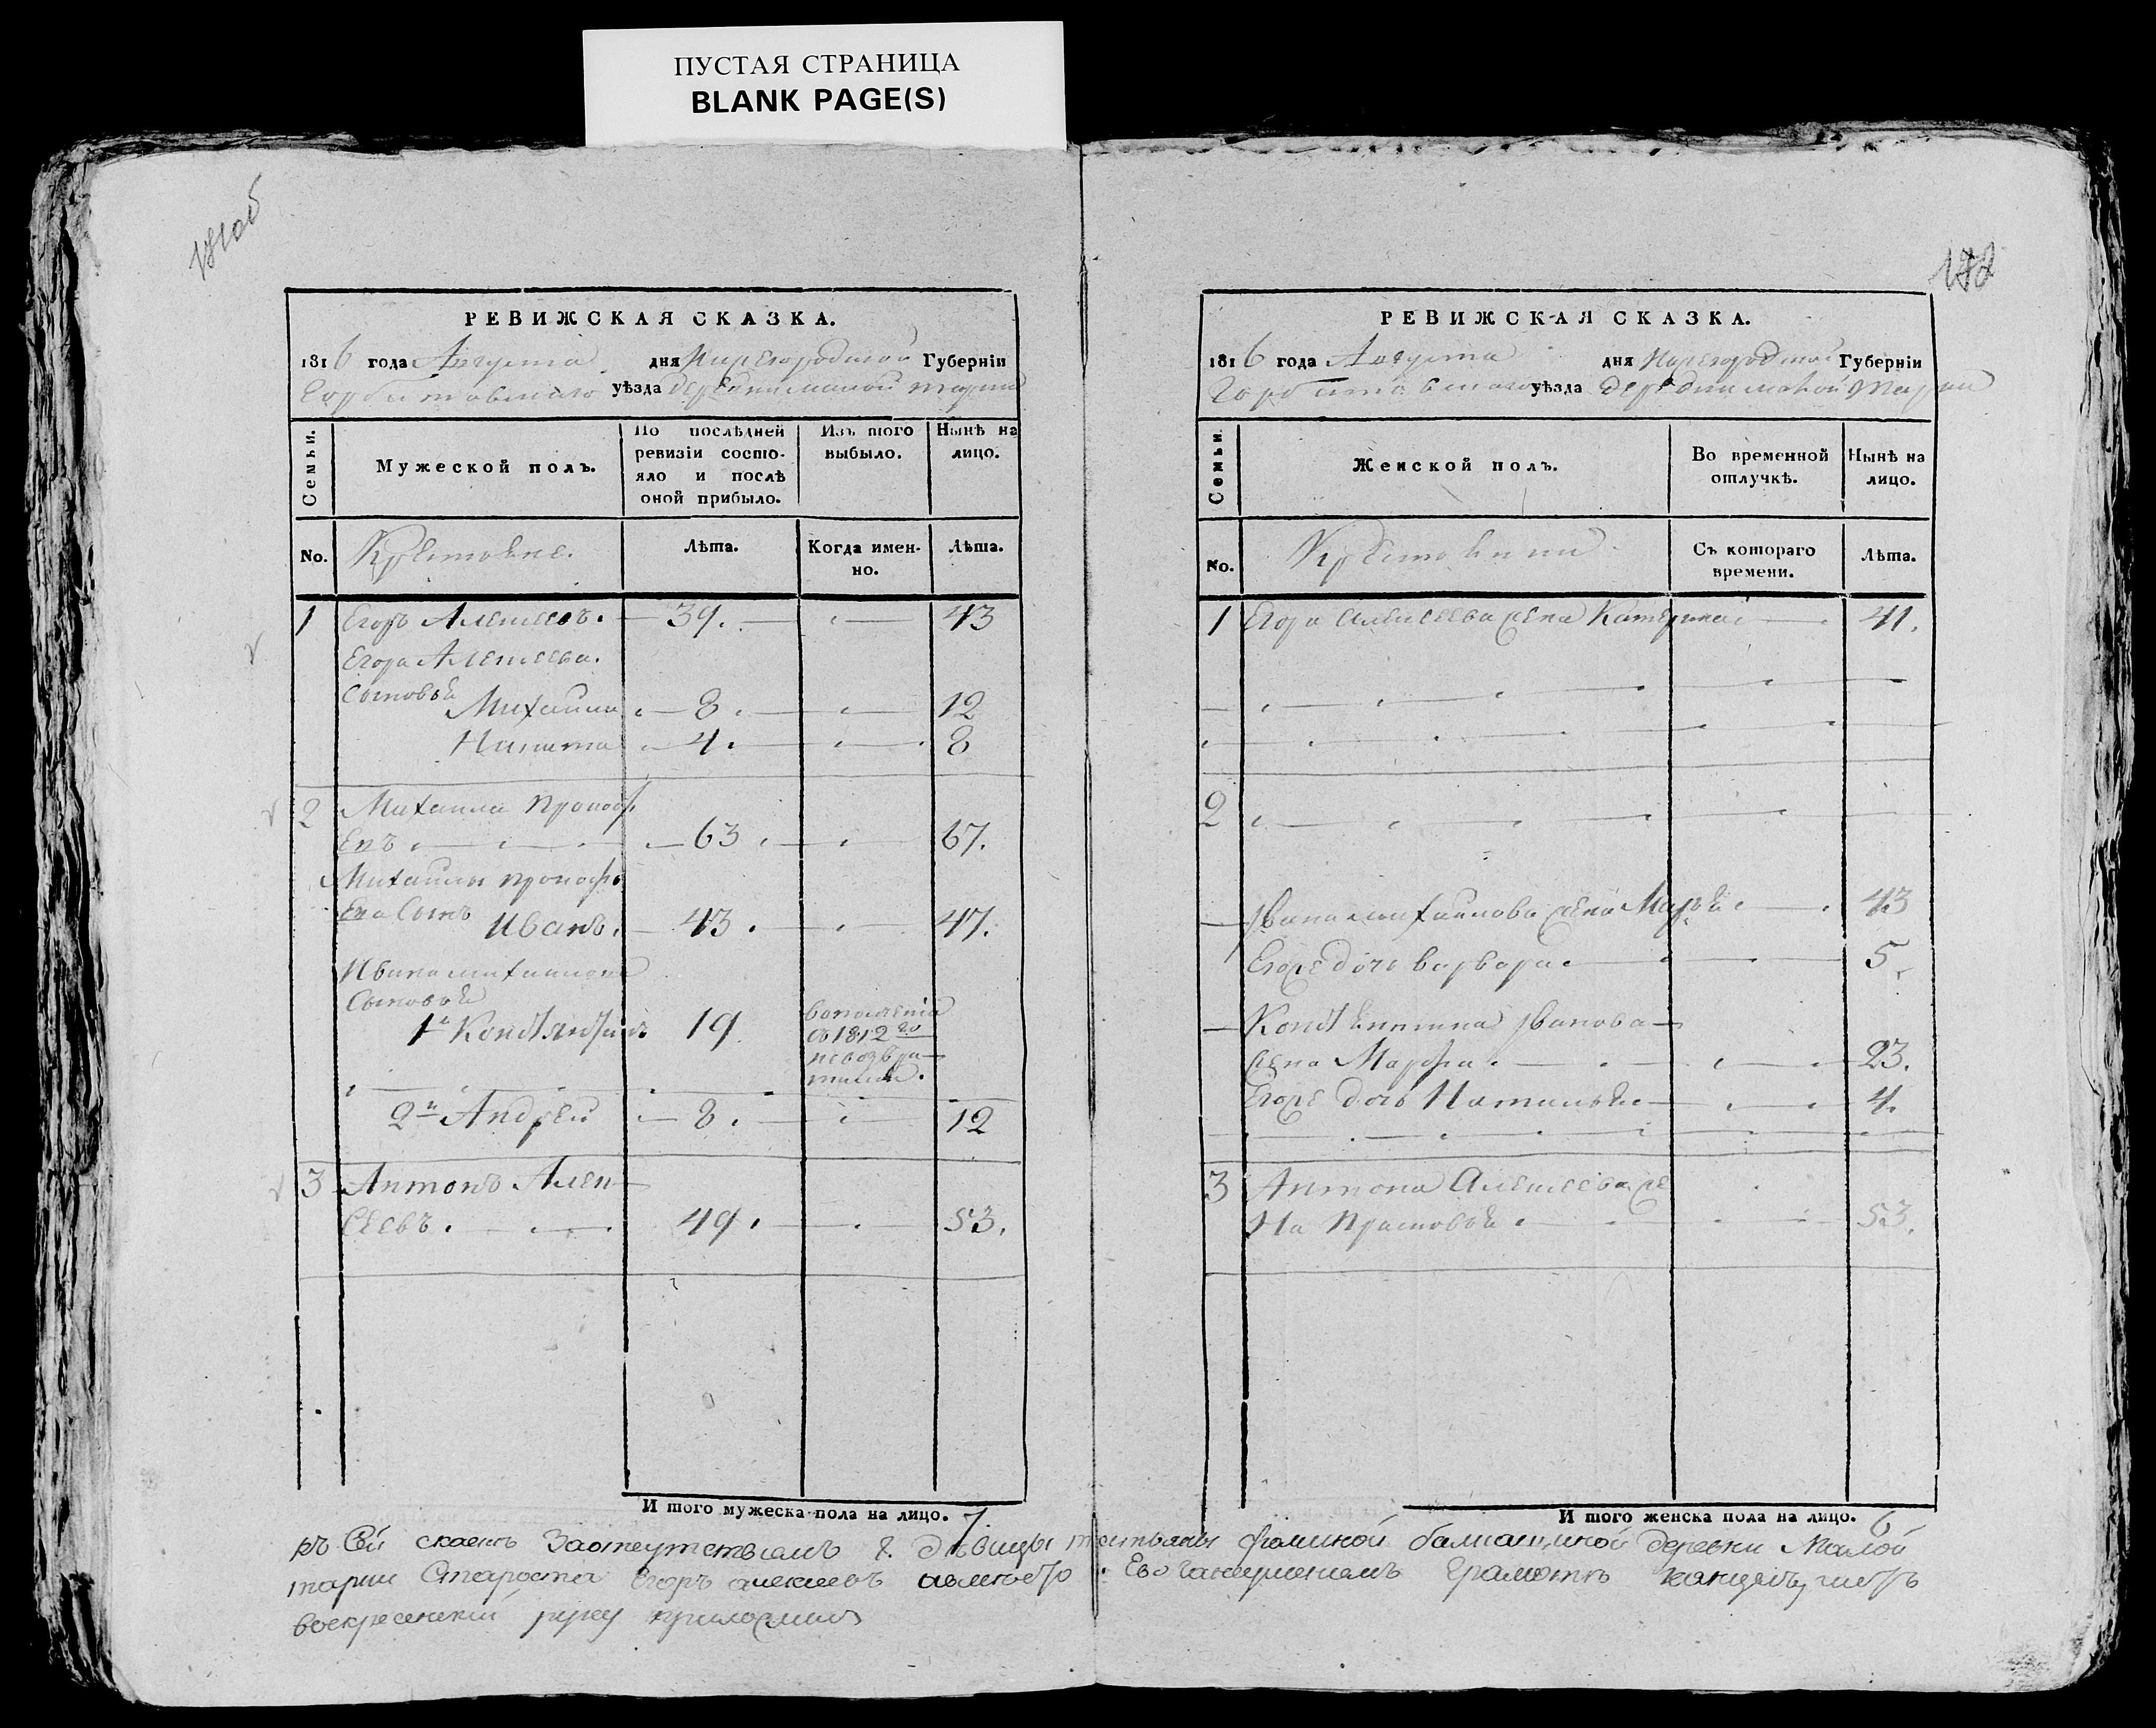 ПУСТАЯ СТРАНИЦА
BLANK PAGE(S)
РЕВИЖСКАЯ СКАЗКА.
1816 года Августа дня Нижегородской Губернiи
Горбатовского уѣзда деревни малой
Семьи.
Мужеской полъ.
По послѣдней ревизiи состо-
яло и послѣ
оной прибыло.
Изъ того выбыло.
Нынѣ на лицо.
No.
Крестьяне.
Лѣта.
Когда имен-
но.
Лѣта.
1 Егоръ Алексеевъ. 39. 43
Егора Алексеева.
Сыновья
Михаила 8. 12
Никита 4. 8
2 Михаила Прокоф
евъ 63. 67.
Михаилы Прокофь
ева Сынъ Иванъ. 43. 47.
Ивана михаилова
Сыновья
1й Констянтинъ 19 вополченiи
въ 1812го
невозвра-
тился.
2й Андрей 8. 12
3 Антонъ Алек
сеевъ. 49. 53.
И того мужеска пола на лицо. 7.
РЕВИЖСКАЯ СКАЗКА.
1816 года Августа дня Нижегородской Губернiи
Горбатовского уѣзда деревни малой
Семьи
Женской полъ.
Во временной
отлучкѣ.
Нынѣ на
лицо.
No.
Крестьянки
Съ котораго
времени.
Лѣта.
1 Егора алексеева жена Катерина 41.
2
Ивана михаилова жена Марья 43
Егоже дочь варвара 5.
Констентина Иванова
жена Марфа. 23.
Егоже дочь Наталья 4.
3 Антона Алексеева же
на Прасковья 53.
И того женска пола на лицо. 6
къ Сей скаске деревни Малой
Староста Егоръ алексеевъ
воскресенскiй руку приложилъ